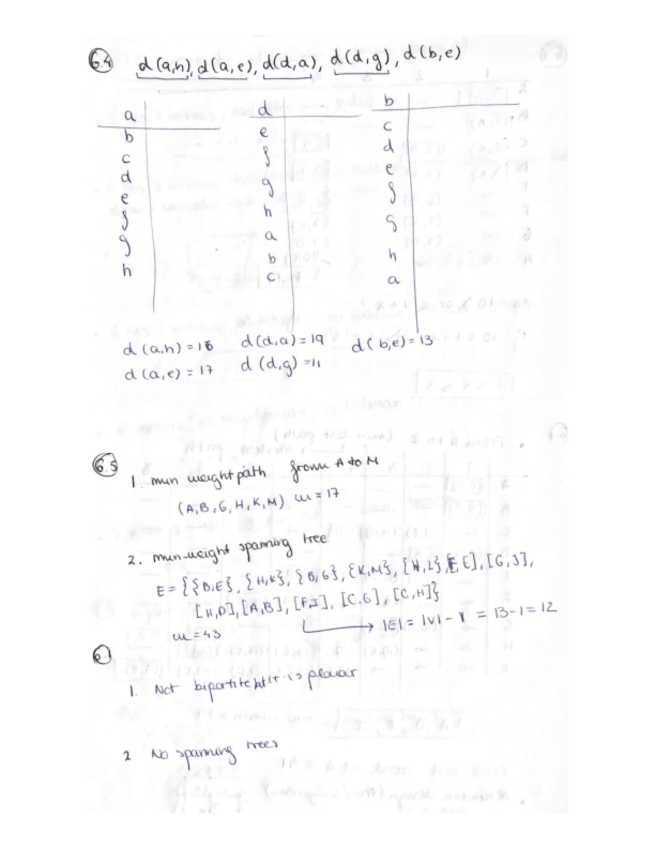 6.4 d(a,h), d(a,e), d(d,a), d(d,g), d(b,e)
a
b
c
d
e
f
g
h
d
e
f
g
h
a
b
c
b
c
d
e
f
g
h
a
d(a,h) = 16 d(d,a) = 19 d(b,e) = 13
d(a,e) = 17 d(d,g) = 11
6.5 1. min weight path from A to M
(A,B,G,H,K,M) w = 17
2. min-weight spanning tree
E = {{D,E}, {H,K}, {B,G}, {K,M}, {H,L}, [G,J],
[H,D], [A,B], [F,I], [C,G], [C,H]}
w = 43 → |E| = |V| - 1 = 13-1 = 12
6.
1. Not bipartite it is planar
2 No spanning trees